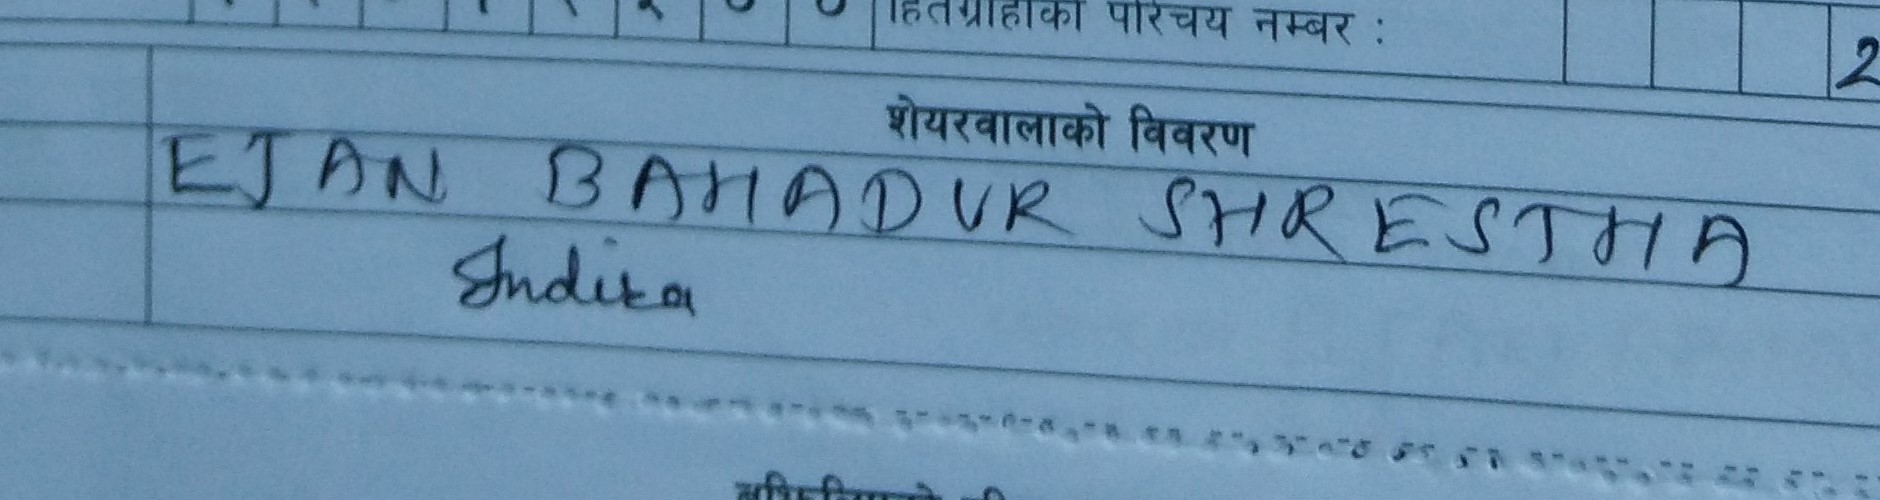 हितग्राहीको परिचय नम्बर : 2
शेयरवालाको विवरण
EJAN BAHADUR SHRESTHA
Indira